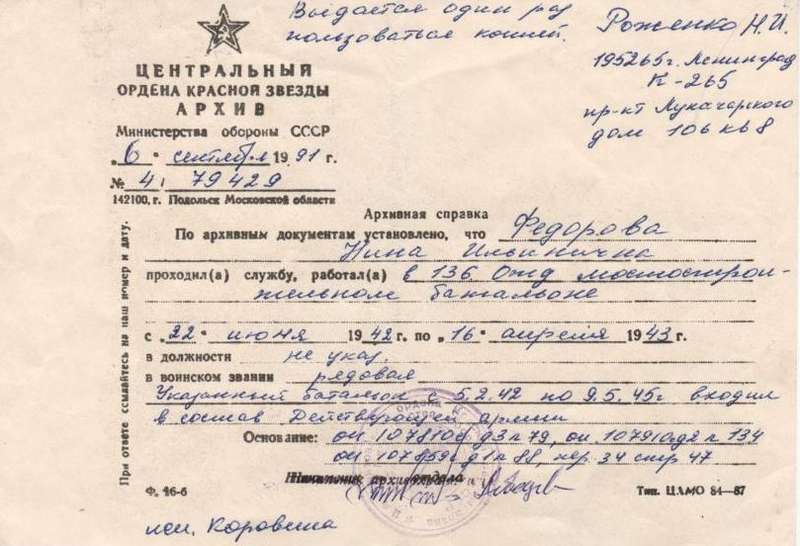 Выдается один раз
пользоваться копией.
Роженко Н.И.
195265 г. Ленинград
К-265
пр-кт Луначарского
дом 106 кв 8
ЦЕНТРАЛЬНЫЙ
ОРДЕНА КРАСНОЙ ЗВЕЗДЫ
АРХИВ
Министерства обороны СССР
„6" сентября 1991 г.
№ 4/ 79429
142100, г. Подольск Московской области
При ответе ссылайтесь на наш номер и дату.
Архивная справка
По архивным документам установлено, что Федорова
Нина Ильинична
проходил(а) службу, работал(а) в 136 Ожд мостострои-
тельном батальоне
с „22" июня 1942 г. по „16" апреля 1943 г.
в должности не указ.
в воинском звании рядовая
Указанный батальон с 5.2.42 по 9.5.45г входил
в состав Действующей армии
Основание: оп 107810с д3 л 79, оп. 107910 д2 л 134
оп 107859с д1 л 88, кор. 34 стр 47
Начальник архивохранилища
Лебедев
Ф. 16-б
Тип. ЦАМО 84—87
исп. Коровина